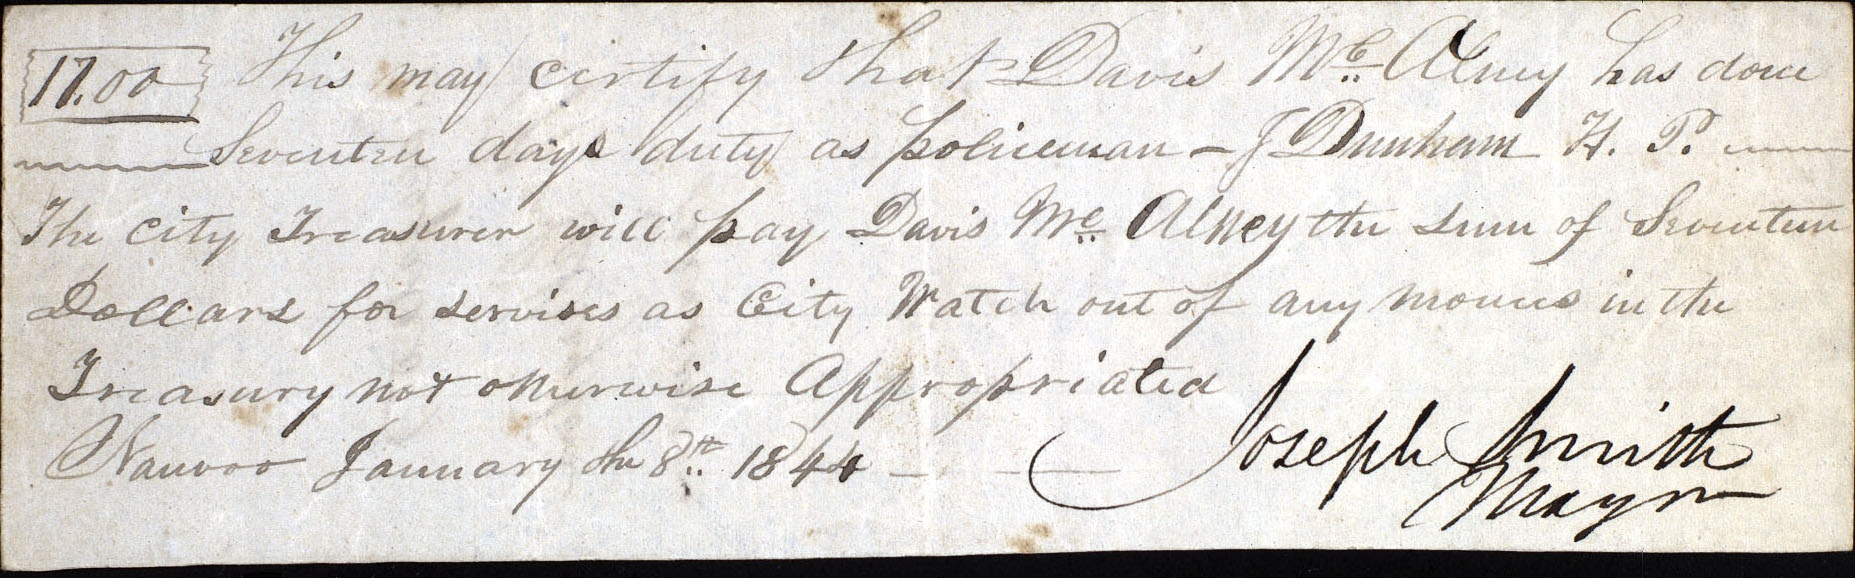 17.00 This may certify that Davis Mc. Alney has done
Seventen days duty as policeman – J Dunham H. P.
The city Treasurer will pay Davis Mc. Alney the sum of Seventeen
Dollars for servises as City Watch out of any monies in the
Treasury not otherwise Appropriated
Nauvoo January the 8th 1844 –
Joseph Smith
Mayor